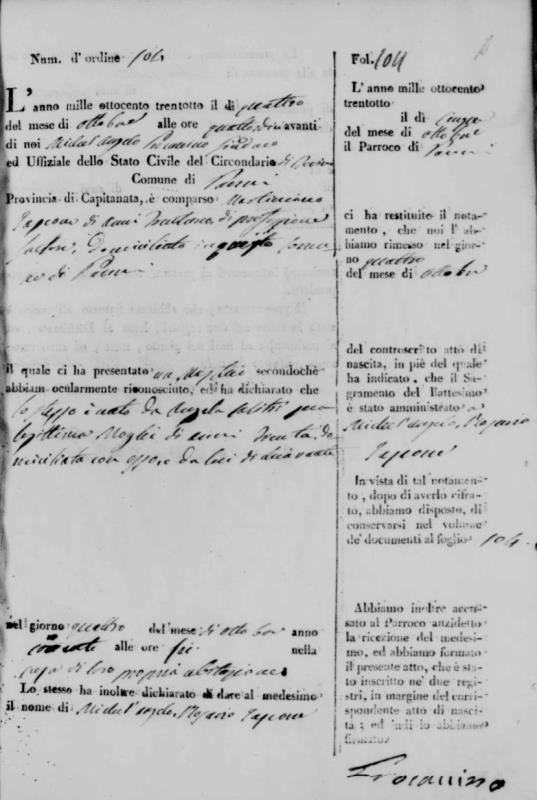 Num. d'ordine 104
L'anno mille ottocento trentotto il di quattro
del mese di ottobre alle ore quattordici avanti
di noi Michel'angelo Procaccino Sindaco
ed Uffiziale dello Stato Civile del Circondario di
Comune di Panni
Provincia di Capitanata, è comparso
di anni di professione
Domiciliato in questo Comu
ne di Panni
il quale ci ha presentato un Maschio secondochè
abbiam ocularmente riconosciuto, ed ha dichiarato che
lo stesso è nato da Angela sua
legittima Moglie di anni trenta do
miciliata con esso e da lui dichiarante
nel giorno quattro del mese di ottobre anno
corrente alle ore sei nella
casa di loro propria abitazione
Lo stesso ha inoltre dichiarato di dare al medesimo
il nome di Michel'angelo, Rosario
Fol. 104
L'anno mille ottocento
trentotto
il di cinque
del mese di ottobre
il Parroco di Panni
ci ha restituito il nota-
mento, che noi l'ab-
biamo rimesso nel gior-
no quattro
del mese di ottobre
del controscritto atto di
nascita, in piè del quale
ha indicato, che il Sa-
gramento del Battesimo
è stato amministrato a
Michel'angelo, Rosario
In vista di tal notamen-
to, dopo di averlo cifra-
to, abbiamo disposto, di
conservarsi nel volume
de' documenti al foglio 104
Abbiamo inoltre accu-
sato al Parroco anzidetto
la ricezione del medesi-
mo, ed abbiamo formato
il presente atto, che è sta-
to inscritto ne' due regi-
stri, in margine del corri-
spondente atto di nasci-
ta; ed indi lo abbiamo
firmato
Procaccino